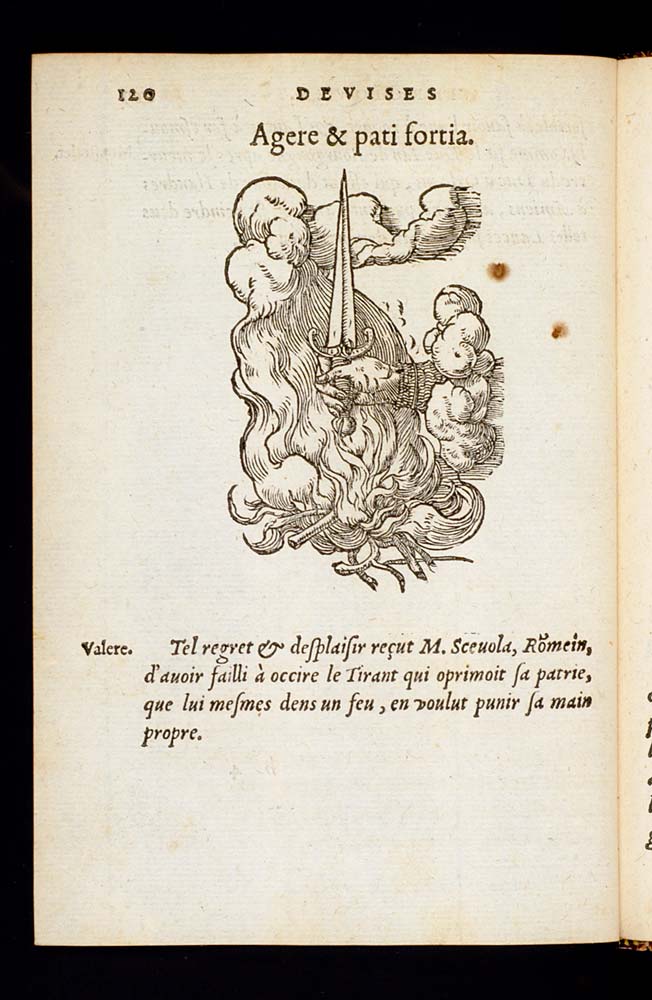 120 DEVISES
Agere & pati fortia.
Valere. Tel regret & desplaisir reçut M. Sceuola, Romein,
d'auoir failli à occire le Tirant qui oprimoit sa patrie,
que lui mesmes dens un feu, en voulut punir sa main
propre.